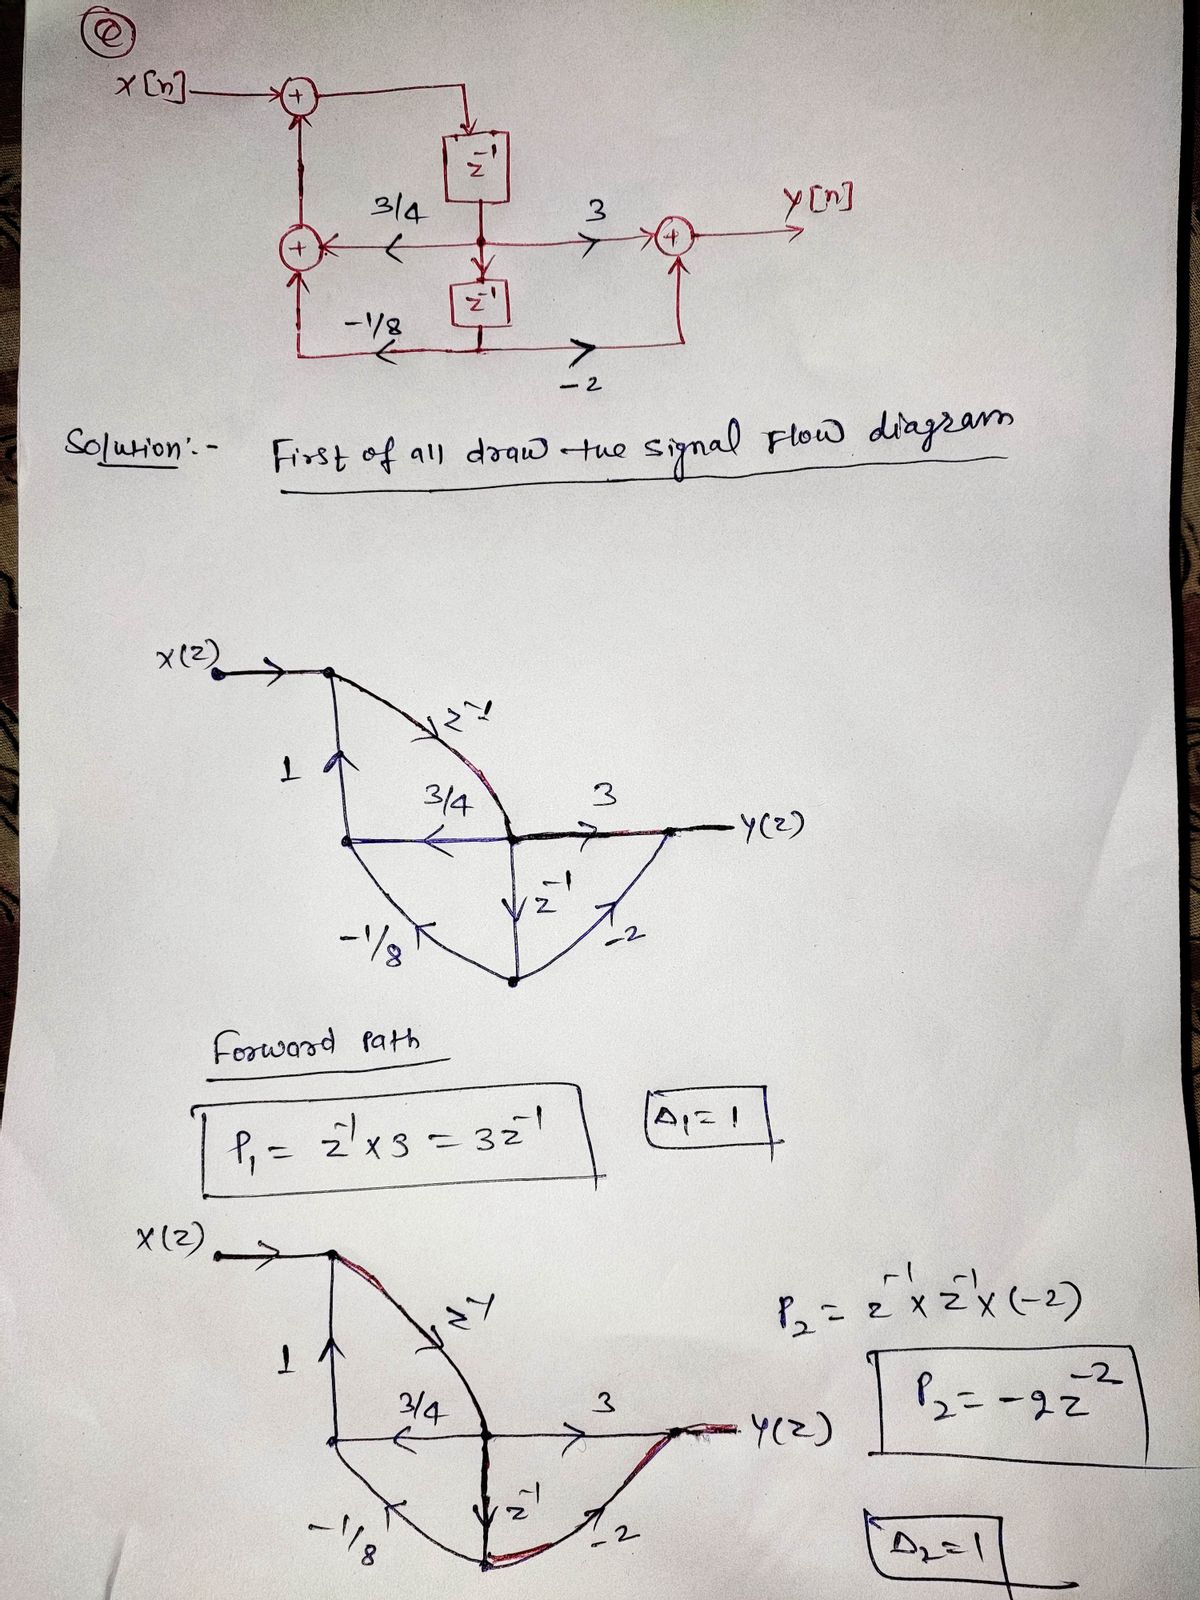 e
x[n]
+
z⁻¹
3/4
3
y[n]
+
+
z⁻¹
-1/8
-2
Solution:- First of all draw the signal flow diagram
X(z)
z⁻¹
1
3/4
3
Y(z)
z⁻¹
-1/8
-2
Forward Path
P₁ = z⁻¹ x 3 = 3z⁻¹
Δ₁ = 1
X(z)
z⁻¹
P₂ = z⁻¹ x z⁻¹ x (-2)
1
3/4
3
Y(z)
P₂ = -2z⁻²
z⁻¹
-1/8
-2
Δ₂ = 1